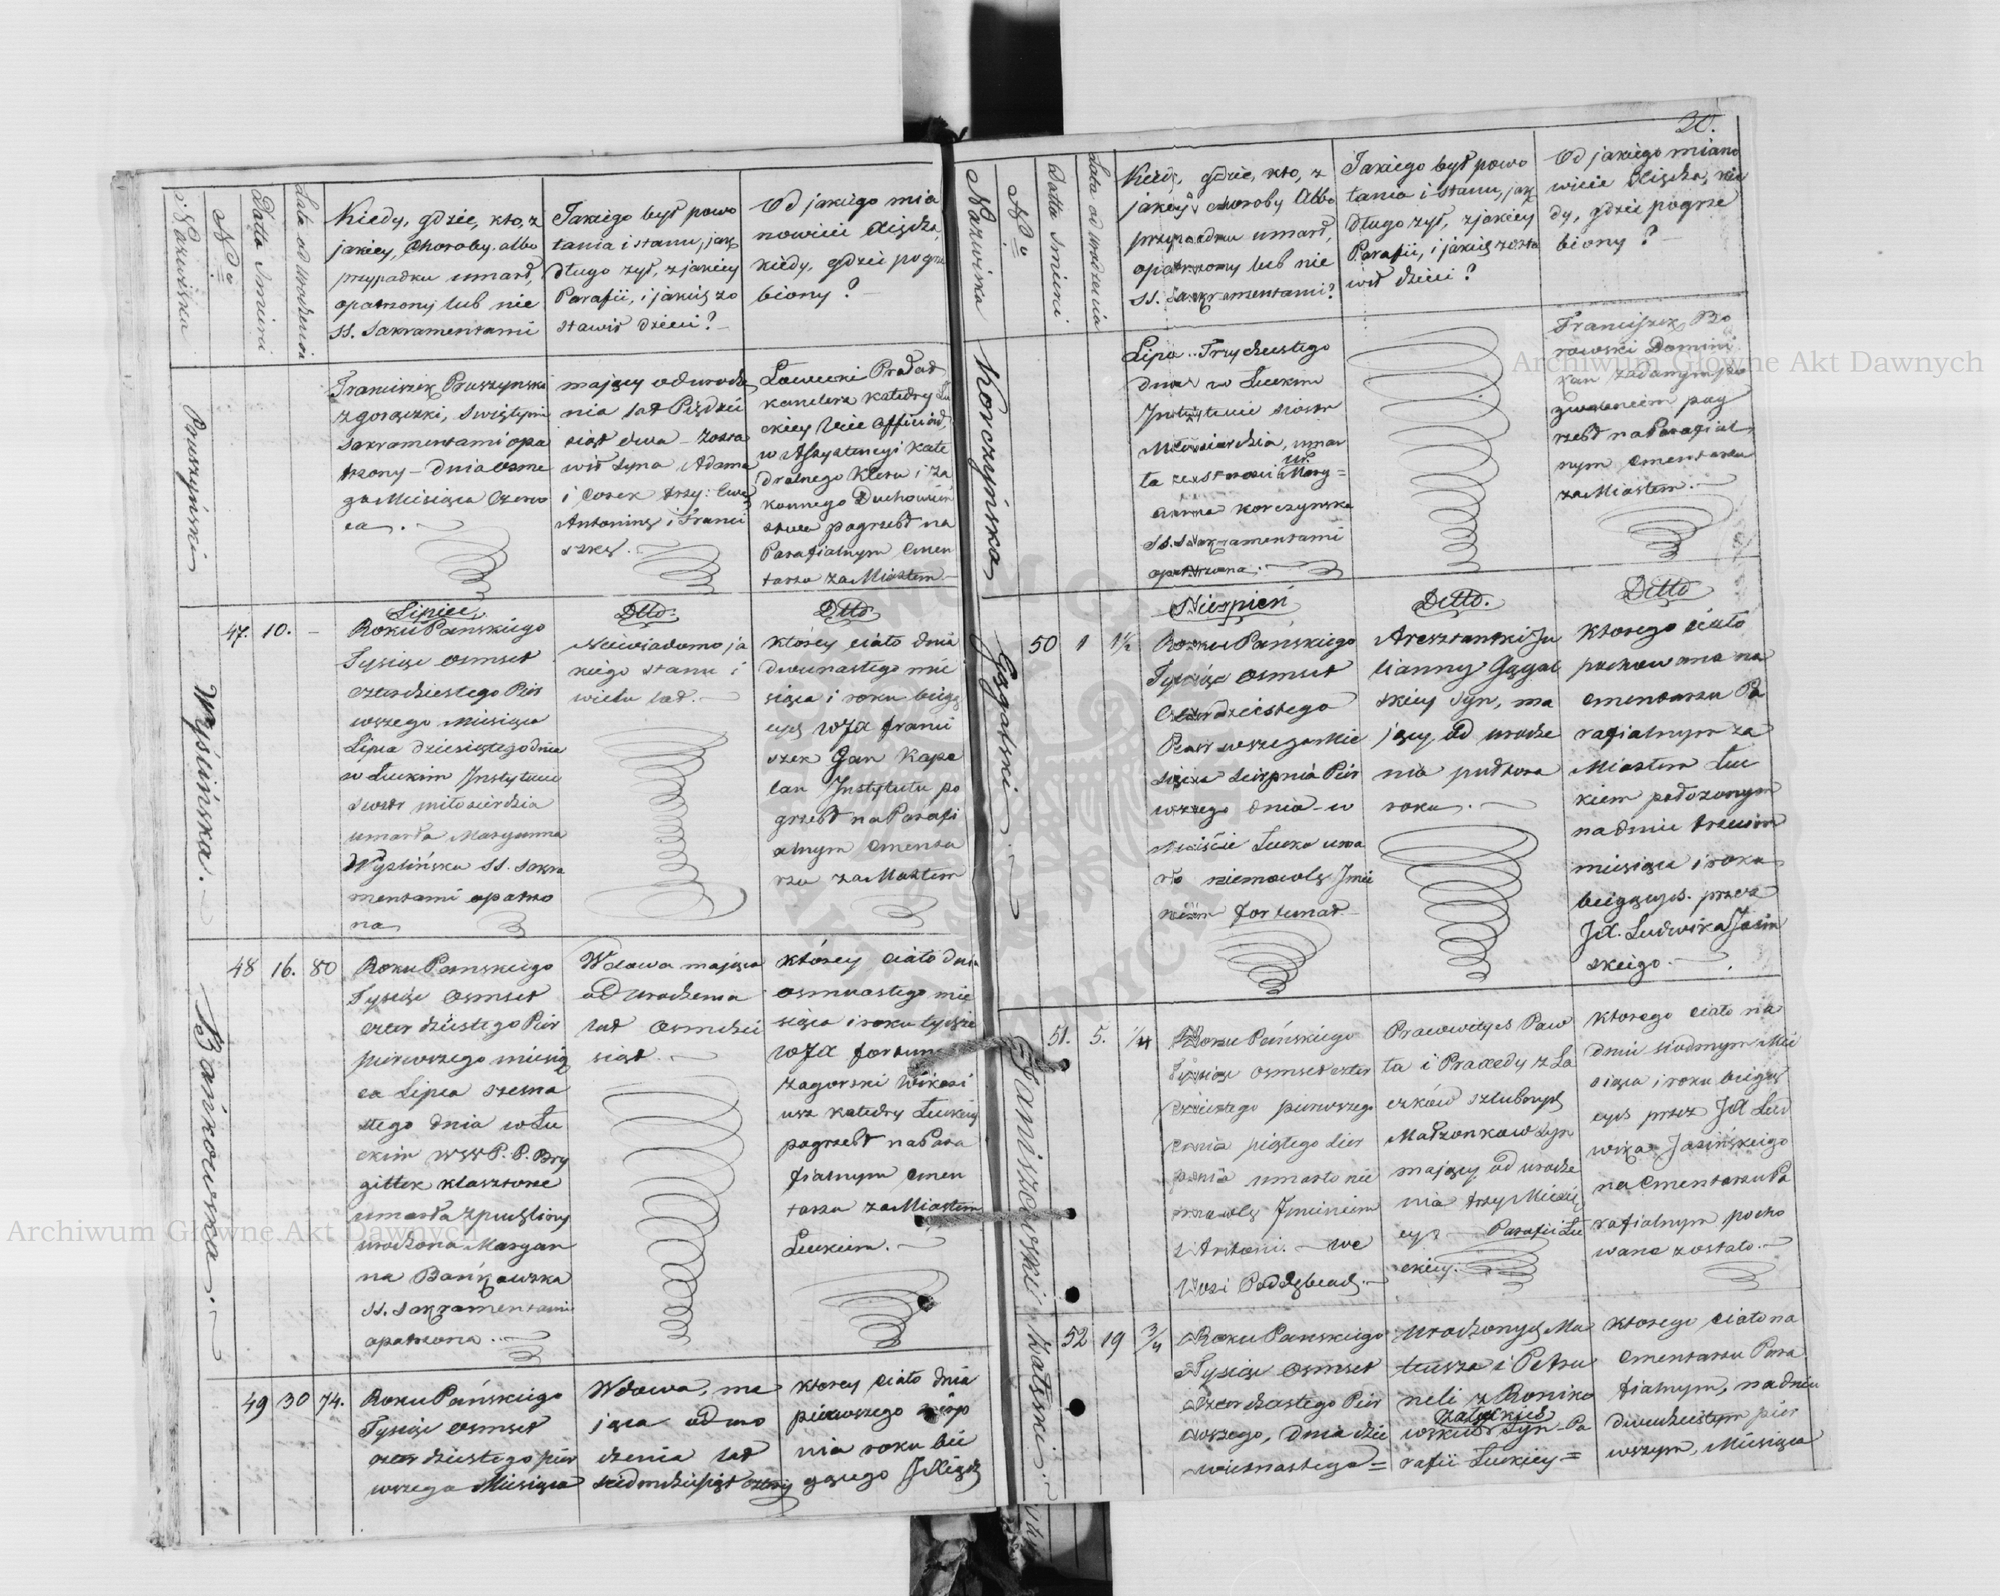 Nazwiska
No
Datta Śmierci
Lata od urodzenia
Kiedy, gdzie, kto, z
jakiey, Choroby albo
przypadku umarł,
opatrzony lub nie
SS. Sakramentami
Jakiego był powo
łania i stanu, jak
długo żył, z jakiey
Parafii, i jakie zo
stawił dzieci?
Od jakiego mia
nowicie Xiędza,
kiedy, gdzie pogrze
biony?
Pruszyński
Franciszek Pruszynski
z gorączki, Swiętymi
Sakramentami opa
trzony – dnia osme
go Miesiąca Czerw
ca.
maiący od urodze
nia lat Pięćdzie
siąt dwa – zosta
wił Syna Adama
i Corek trzy: Ewę
Antoninę i Franci
szkę.
Łowecki Prałat
kanclerz Katedry Łu
ckiey Vice Officiał,
w Assystencyi Kate
dralnego Kleru i Za
konnego Duchowień
stwa pogrzebł na
Parafialnym Cmen
tarzu za Miastem
Wyślińska.
47. 10. –
Lipiec
Roku Pańskiego
Tysiąc osmset
czterdziestego Pier
wszego Miesiąca
Lipca dziesiątego dnia
w Łuckim Instytucie
Siostr miłosierdzia
umarła Maryanna
Wyslińska SS. Sakra
mentami opatrzo
na
Detto.
Niewiadomo ja
kiego stanu i
wielu lat.
Detto
ktorey ciało dnia
dwunastego mie
siąca i roku bieżą
cych WJX Franci
szek Gan Kape
lan Instytutu po
grzebł na Parafi
alnym Cmenta
rzu za Miastem
Bańkowska.
48 16. 80
Roku Pańskiego
Tysiąc Osmset
czterdziestego Pier
pierwszego miesią
ca Lipca szesna
stego dnia w Łu
ckim WW P. P. Bry
gittek klasztorze
umarła z puchliny
urodzona Maryan
na Bańkowska
SS. Sakramentami
opatrzona.
Wdowa mająca
od urodzenia
lat Osmdzie
siąt.
którey ciało dnia
osmnastego mie
siąca i roku tychże
WJX Fortun
Zagorski Wikari
usz katedry Łuckiey
pogrzebł na Para
fialnym Cmen
tarzu za Miastem
Łuckiem.
49 30 74.
Roku Pańskiego
Tysiąc Osmset
czterdziestego pier
wszego Miesiąca
Wdowa, ma
jąca od uro
dzenia lat
siedmdziesiąt cztery
ktorey ciało dnia
pierwszego sierp
nia roku bie
żącego JXiądz
20.
Nazwiska
No
Datta Śmierci
Lata od urodzenia
Kiedy, gdzie, kto, z
jakiey choroby Albo
przypadku umarł,
opatrzony lub nie
SS. Sakramentami?
Jakiego był powo
łania i stanu, jak
długo żył, z jakiey
Parafii, i jakie zosta
wił dzieci?
Od jakiego miano
wicie Xiędza, kie
dy, gdzie pogrze
biony?
Korczyńska
Lipca Trzydziestego
dnia w Łuckim
Instytucie siostr
Miłosierdzia, umar
ła ze starosci ur. Mary=
anna Korczynska
SS. Sakramentami
opatrzona.
Franciszek Bo
rowski Domini
kan za danym po
zwoleniem pog
rzebł na Parafial
nym Cmentarzu
za Miastem.
Gągalski
50 1 1½
Sierpień
Roku Pańskiego
Tysiąc Osmset
Czterdziestego
Pierwszego Mie
siąca Sierpnia Pier
wszego dnia – w
Mieście Łucku uma
rło niemowlę Imie
niem Fortunat
Detto.
Aresztantki Ju
lianny Gągal
skiey Syn, ma
jący od urodze
nia pułtora
roku.
Detto
Ktorego ciało
pochowano na
Cmentarzu Pa
rafialnym za
Miastem Łuc
kiem położonym
na dniu trzecim
miesiąca i roku
bieżących. przez
JX. Ludwika Jasin
skiego.
Staniszewski
51. 5. ¼
Roku Pańskiego
Tysiąc osmset czter
dziestego pierwszego
dnia piątego Sier
pnia umarło nie
mowlę Imieniem
Antoni. – we
Wsi Poddębcach.
Pracowitych Paw
ła i Praxedy z Ła
czków szlubnych
Małżonkow Syn
mający od urodze
nia trzy Miesią
cy – Parafii Łu
ckiey.
Ktorego ciało na
dniu siodmym Mie
siąca i roku bieżą
cych przez JX Lud
wika Jasińskiego
na Cmentarzu Pa
rafialnym pocho
wane zostało.
Załski.
52 19 ¾
Roku Pańskiego
Tysiąc Osmset
Czterdziestego Pier
wszego, dnia dzie
wietnastego=
Urodzonych Ma
teusza i Petro
neli z Roniko
wskich Syn – Pa
rafii Łuckiey=
ktorego ciało na
Cmentarzu Para
fialnym, na dniu
dwudziestym pier
wszym, Miesiąca
Archiwum Główne Akt Dawnych
Archiwum Główne Akt Dawnych